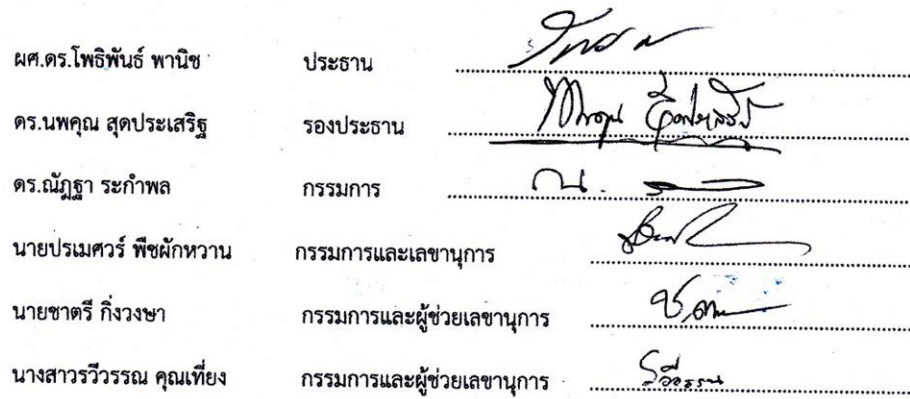 ผศ.ดร.โพธิพันธ์ พานิช ประธาน
ดร.นพคุณ สุดประเสริฐ รองประธาน
ดร.ณัฎฐา ระกำพล กรรมการ ณ.
นายปรเมศวร์ พืชผักหวาน กรรมการและเลขานุการ
นายชาตรี กิ่งวงษา กรรมการและผู้ช่วยเลขานุการ
นางสาวรวีวรรณ คุณเที่ยง กรรมการและผู้ช่วยเลขานุการ รวีวรรณ